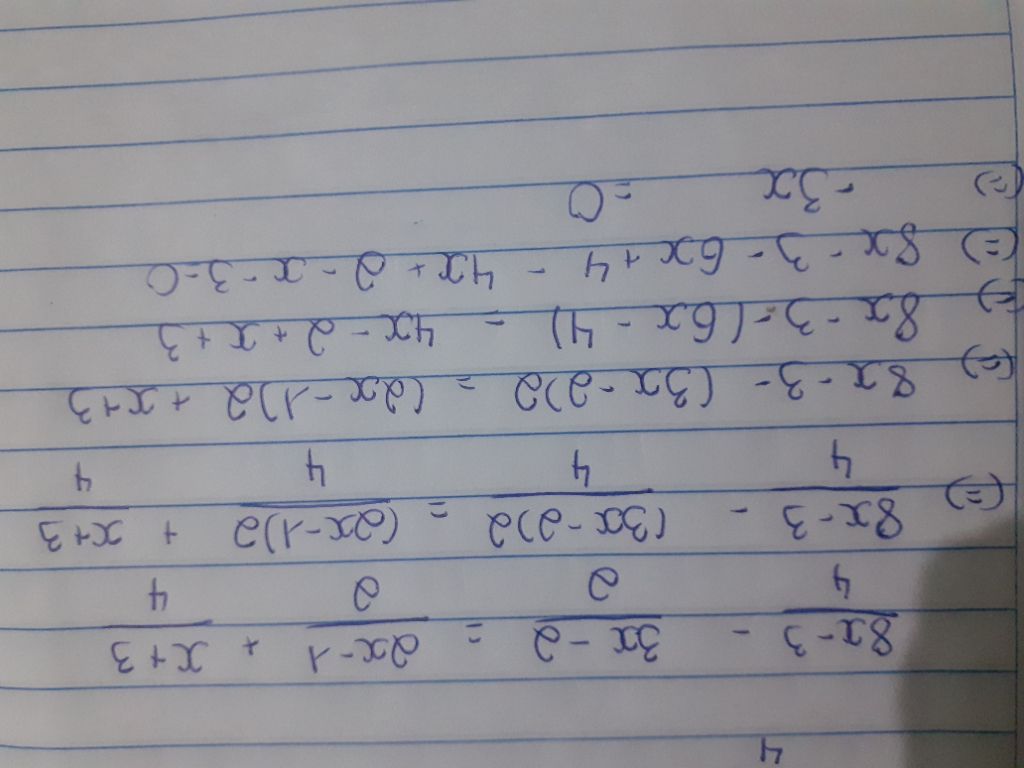 4
8x-3/4 - 3x-2/2 = 2x-1/2 + x+3/4
(=) 8x-3/4 - (3x-2)2/4 = (2x-1)2/4 + x+3/4
(=) 8x-3-(3x-2)2 = (2x-1)2 + x+3
(=) 8x-3-(6x-4) = 4x-2+x+3
(=) 8x-3-6x+4-4x+2-x-3=0
(=) -3x =0